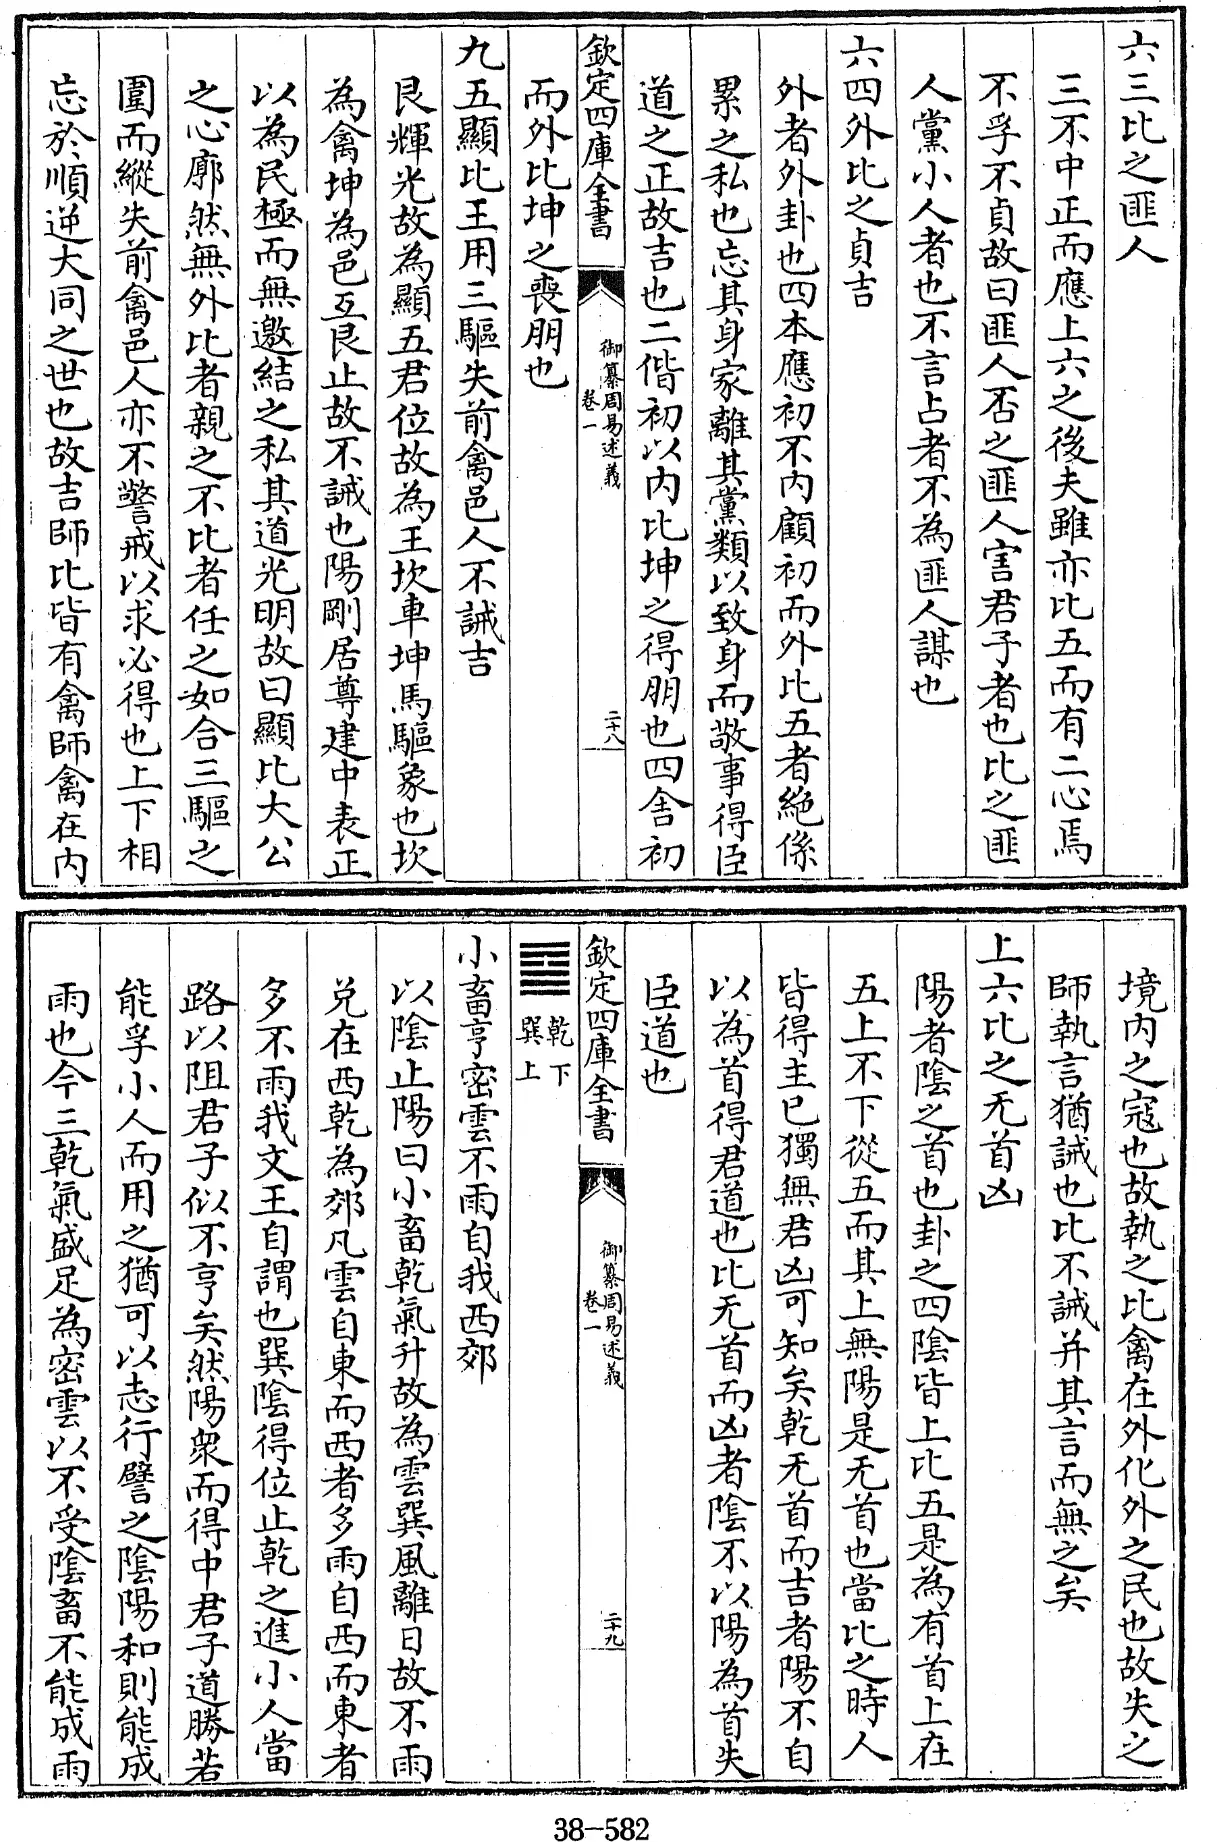 六三比之匪人
三不中正而應上六之後夫雖亦比五而有二心焉
不孚不貞故曰匪人否之匪人害君子者也比之匪
人黨小人者也不言占者不為匪人謀也
六四外比之貞吉
外者外卦也四本應初不內顧初而外比五者絶係
累之私也忘其身家離其黨類以致身而敬事得臣
道之正故吉也二偕初以內比坤之得朋也四舍初
欽定四庫全書
御纂周易述義
卷一
二十八
而外比坤之喪朋也
九五顯比王用三驅失前禽邑人不誡吉
艮輝光故為顯五君位故為王坎車坤馬驅象也坎
為禽坤為邑互艮止故不誡也陽剛居尊建中表正
以為民極而無邀結之私其道光明故曰顯比大公
之心廓然無外比者親之不比者任之如合三驅之
圍而縱失前禽邑人亦不警戒以求必得也上下相
忘於順逆大同之世也故吉師比皆有禽師禽在內
境內之寇也故執之比禽在外化外之民也故失之
師執言猶誡也比不誡并其言而無之矣
上六比之无首凶
陽者陰之首也卦之四陰皆上比五是為有首上在
五上不下從五而其上無陽是无首也當比之時人
皆得主已獨無君凶可知矣乾无首而吉者陽不自
以為首得君道也比无首而凶者陰不以陽為首失
臣道也
欽定四庫全書
御纂周易述義
卷一
二十九
䷈
乾下
巽上
小畜亨密雲不雨自我西郊
以陰止陽曰小畜乾氣升故為雲巽風離日故不雨
兌在西乾為郊凡雲自東而西者多雨自西而東者
多不雨我文王自謂也巽陰得位止乾之進小人當
路以阻君子似不亨矣然陽衆而得中君子道勝若
能孚小人而用之猶可以志行譬之陰陽和則能成
雨也今三乾氣盛足為密雲以不受陰畜不能成雨
38-582